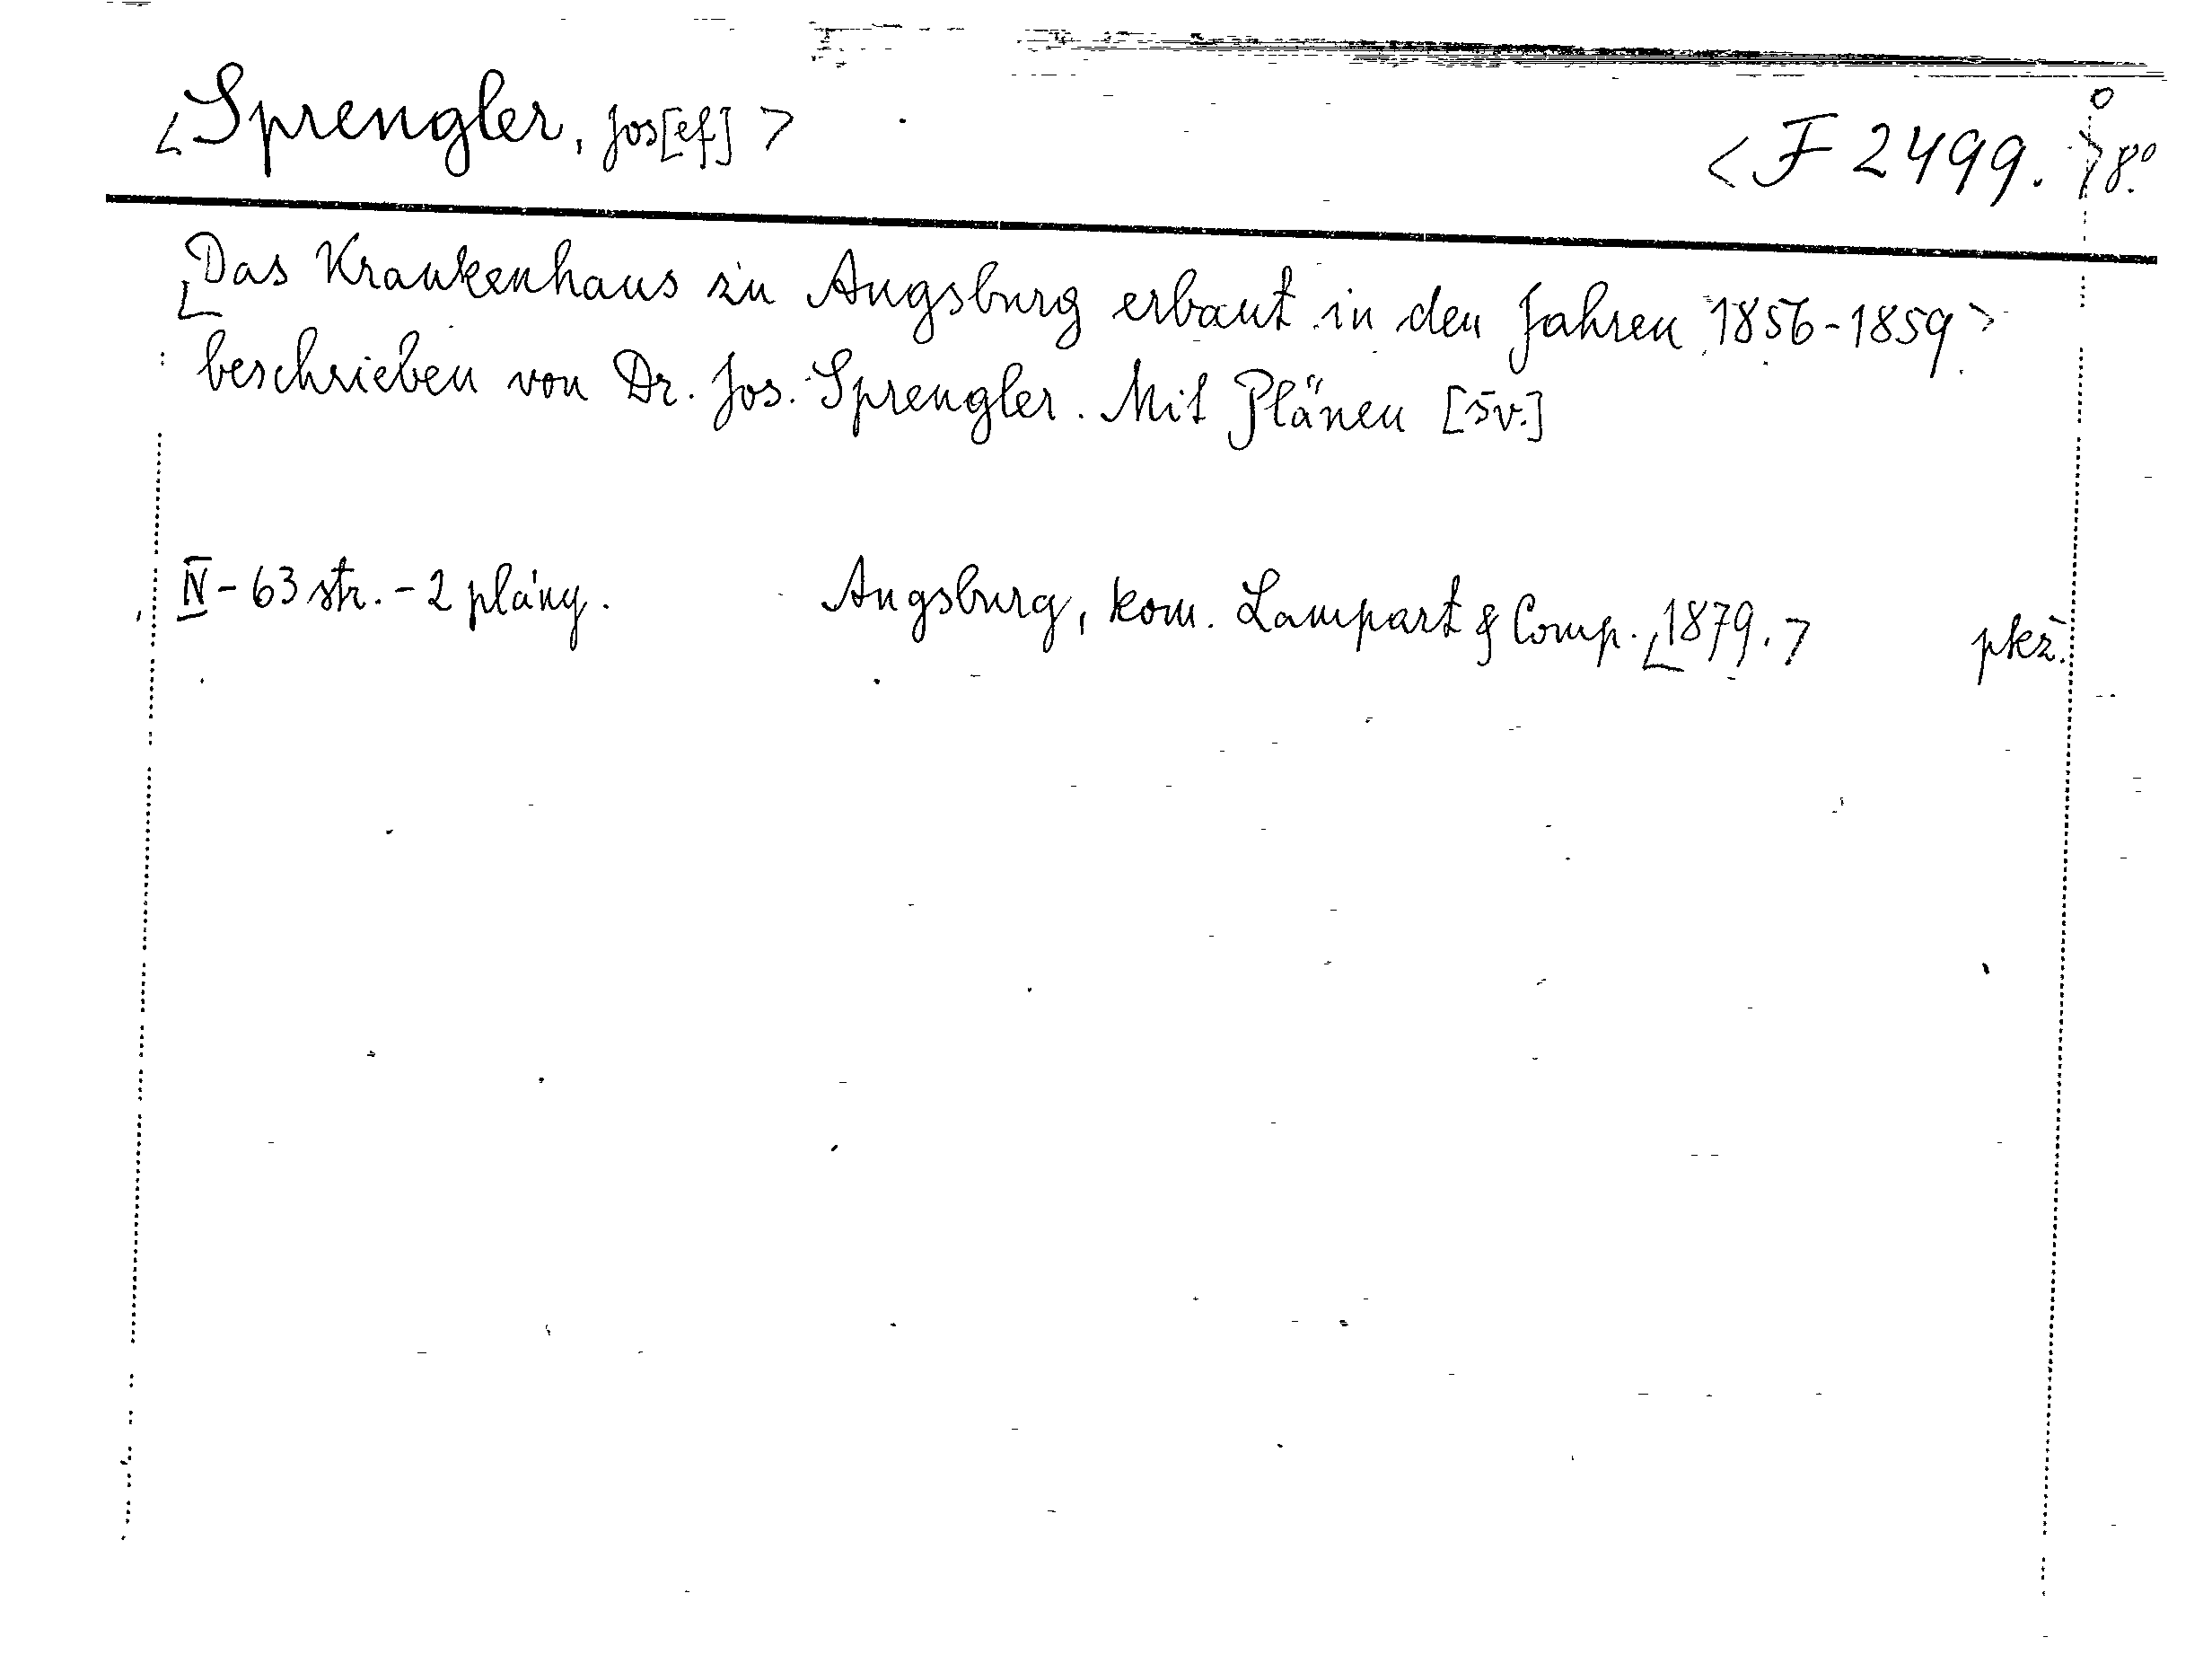 <Sprengler, Jos[ef]> <F 2499.> 8.º
<Das Krankenhaus zu Augsburg erbaut in den Jahren 1856-1859>
beschrieben von Dr. Jos. Sprengler. Mit Plänen [šv.]
IV - 63 str. - 2 plány. Augsburg, kom. Lampart & Comp. <1879.> pkž.